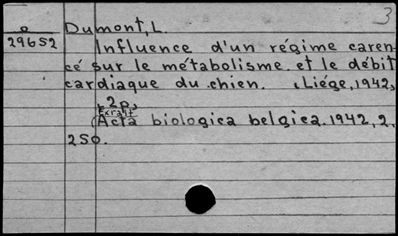 3
o Dumont, L.
29652 Influence d'un régime caren-
cé sur le métabolisme et le débit
cardiaque du chien. Liége, 1942,
2p,
Extrait
(Acta biologica belgica. 1942, 2.
250.